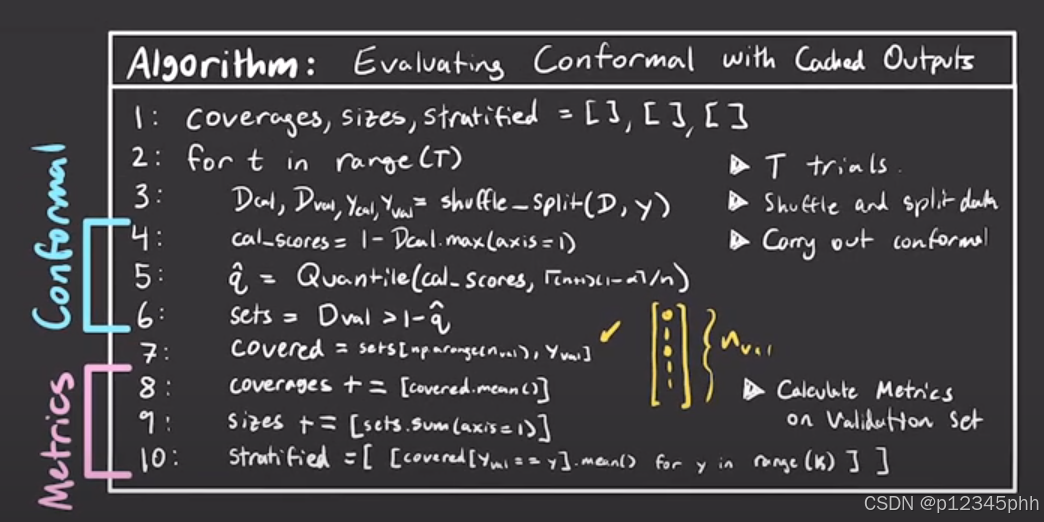 Algorithm: Evaluating Conformal with Cached Outputs
1: coverages, sizes, stratified = [], [], []
2: for t in range(T) ▷ T trials.
3: Dcal, Dval, Ycal, Yval = shuffle_split(D, y) ▷ Shuffle and split data
4: cal_scores = 1 - Dcal.max(axis=1) ▷ Carry out conformal
5: q̂ = Quantile(cal_scores, ⌈(n+1)(1-α)⌉/n)
6: sets = Dval > 1-q̂
7: covered = sets[np.arange(nval), Yval] ✓
nval
8: coverages += [covered.mean()] ▷ Calculate Metrics
9: sizes += [sets.sum(axis=1)] on Validation Set
10: stratified = [ [covered[Yval == y].mean() for y in range(K) ] ]
Conformal
Metrics
CSDN @p12345phh